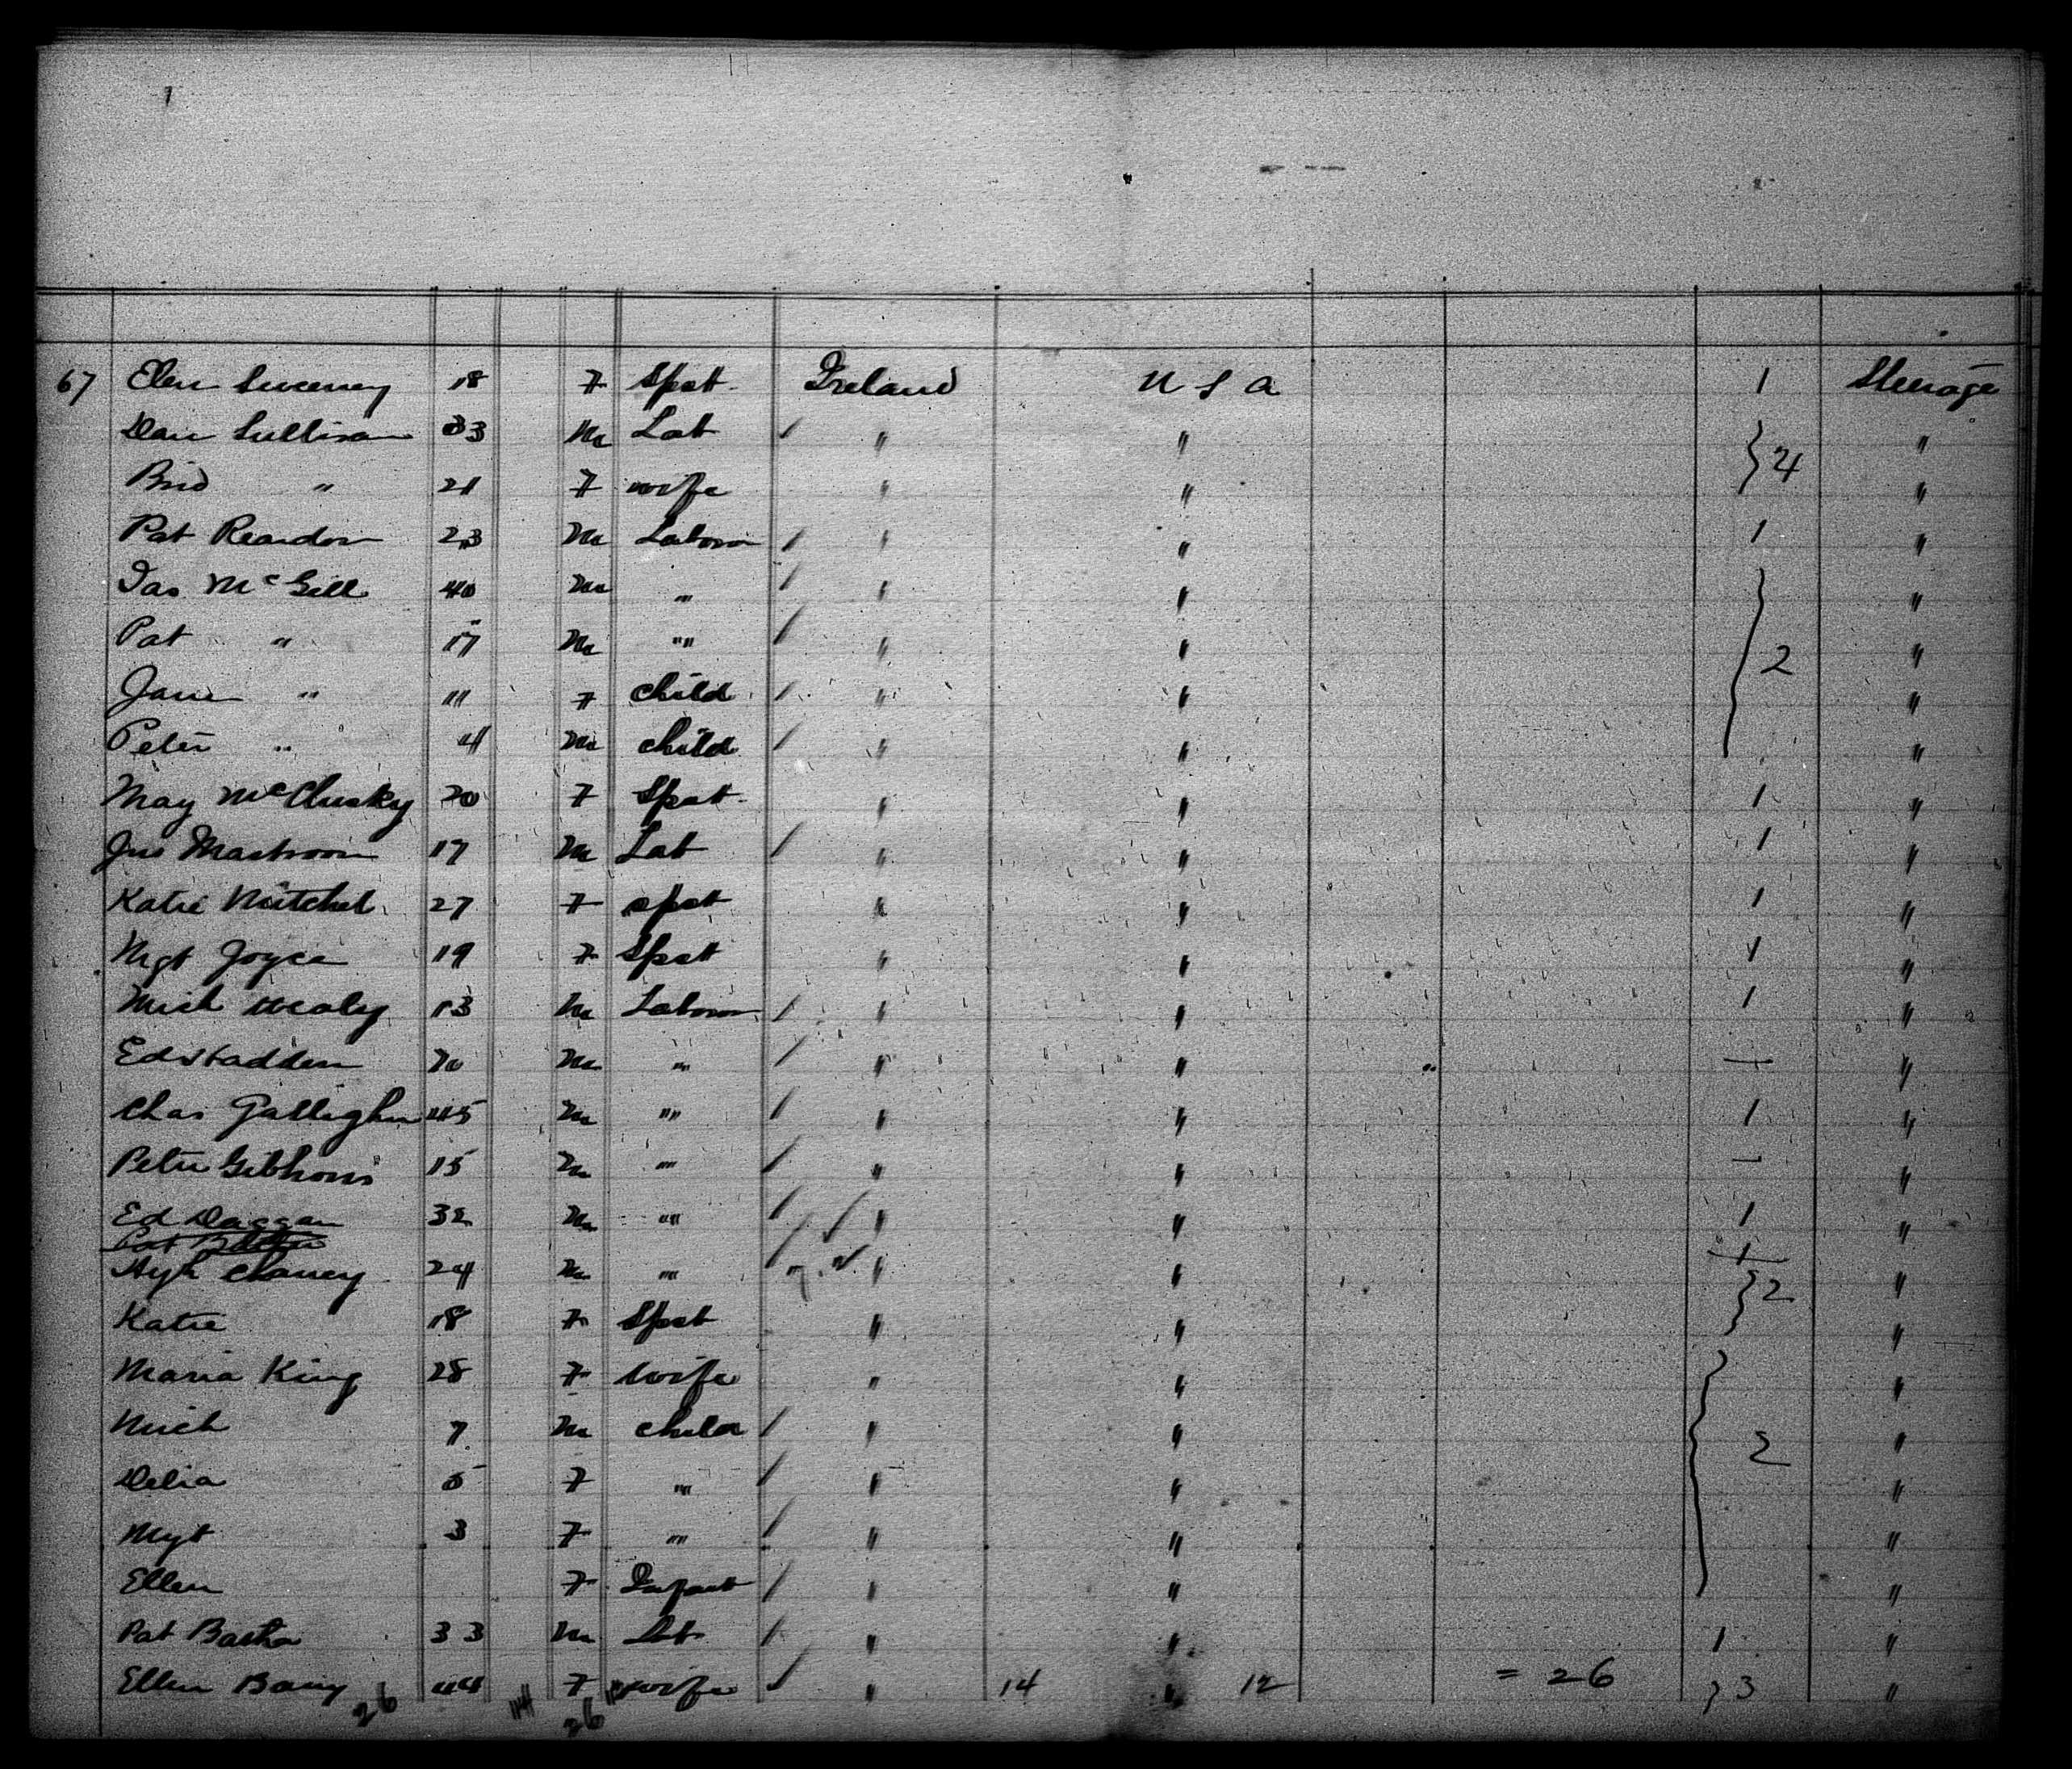 67 Ellen Sweeney 18 F Spst Ireland U S A 1 Steerage
Dan Sullivan 33 M Lab " " } 4 "
Brid " 21 F wife " " "
Pat Reardon 23 M Labour " " 1 "
Jas McGill 40 M " " " } 2 "
Pat " 17 M " " " "
Jane " 11 F child " " "
Peter " 4 M child " " "
May McClusky 20 F Spst " " 1 "
Jno 17 M Lab " " 1 "
Katie Mitchel 27 F spst " " 1 "
Mgt Joyce 19 F Spst " " 1 "
Mich Mealy 13 M Labour " " 1 "
Ed Hadden 20 M " " " "
Chas Gallagher 45 M " " " 1 "
Peter Gibbons 15 M " " " "
Ed Daggan 32 M " " " 1 "
Pat
Hgh Chaney 24 M " " " } 2 "
Katie 18 F Spst " " "
Maria King 28 F Wife " " 2 "
Mich 7 M child " " "
Delia 5 F " " " "
Mgt 3 F " " " "
Ellen F Infant " " "
Pat 33 M Lab " " 1 "
Ellen 44 F wife " 14 " 12 = 26 } 3 "
26 14 26